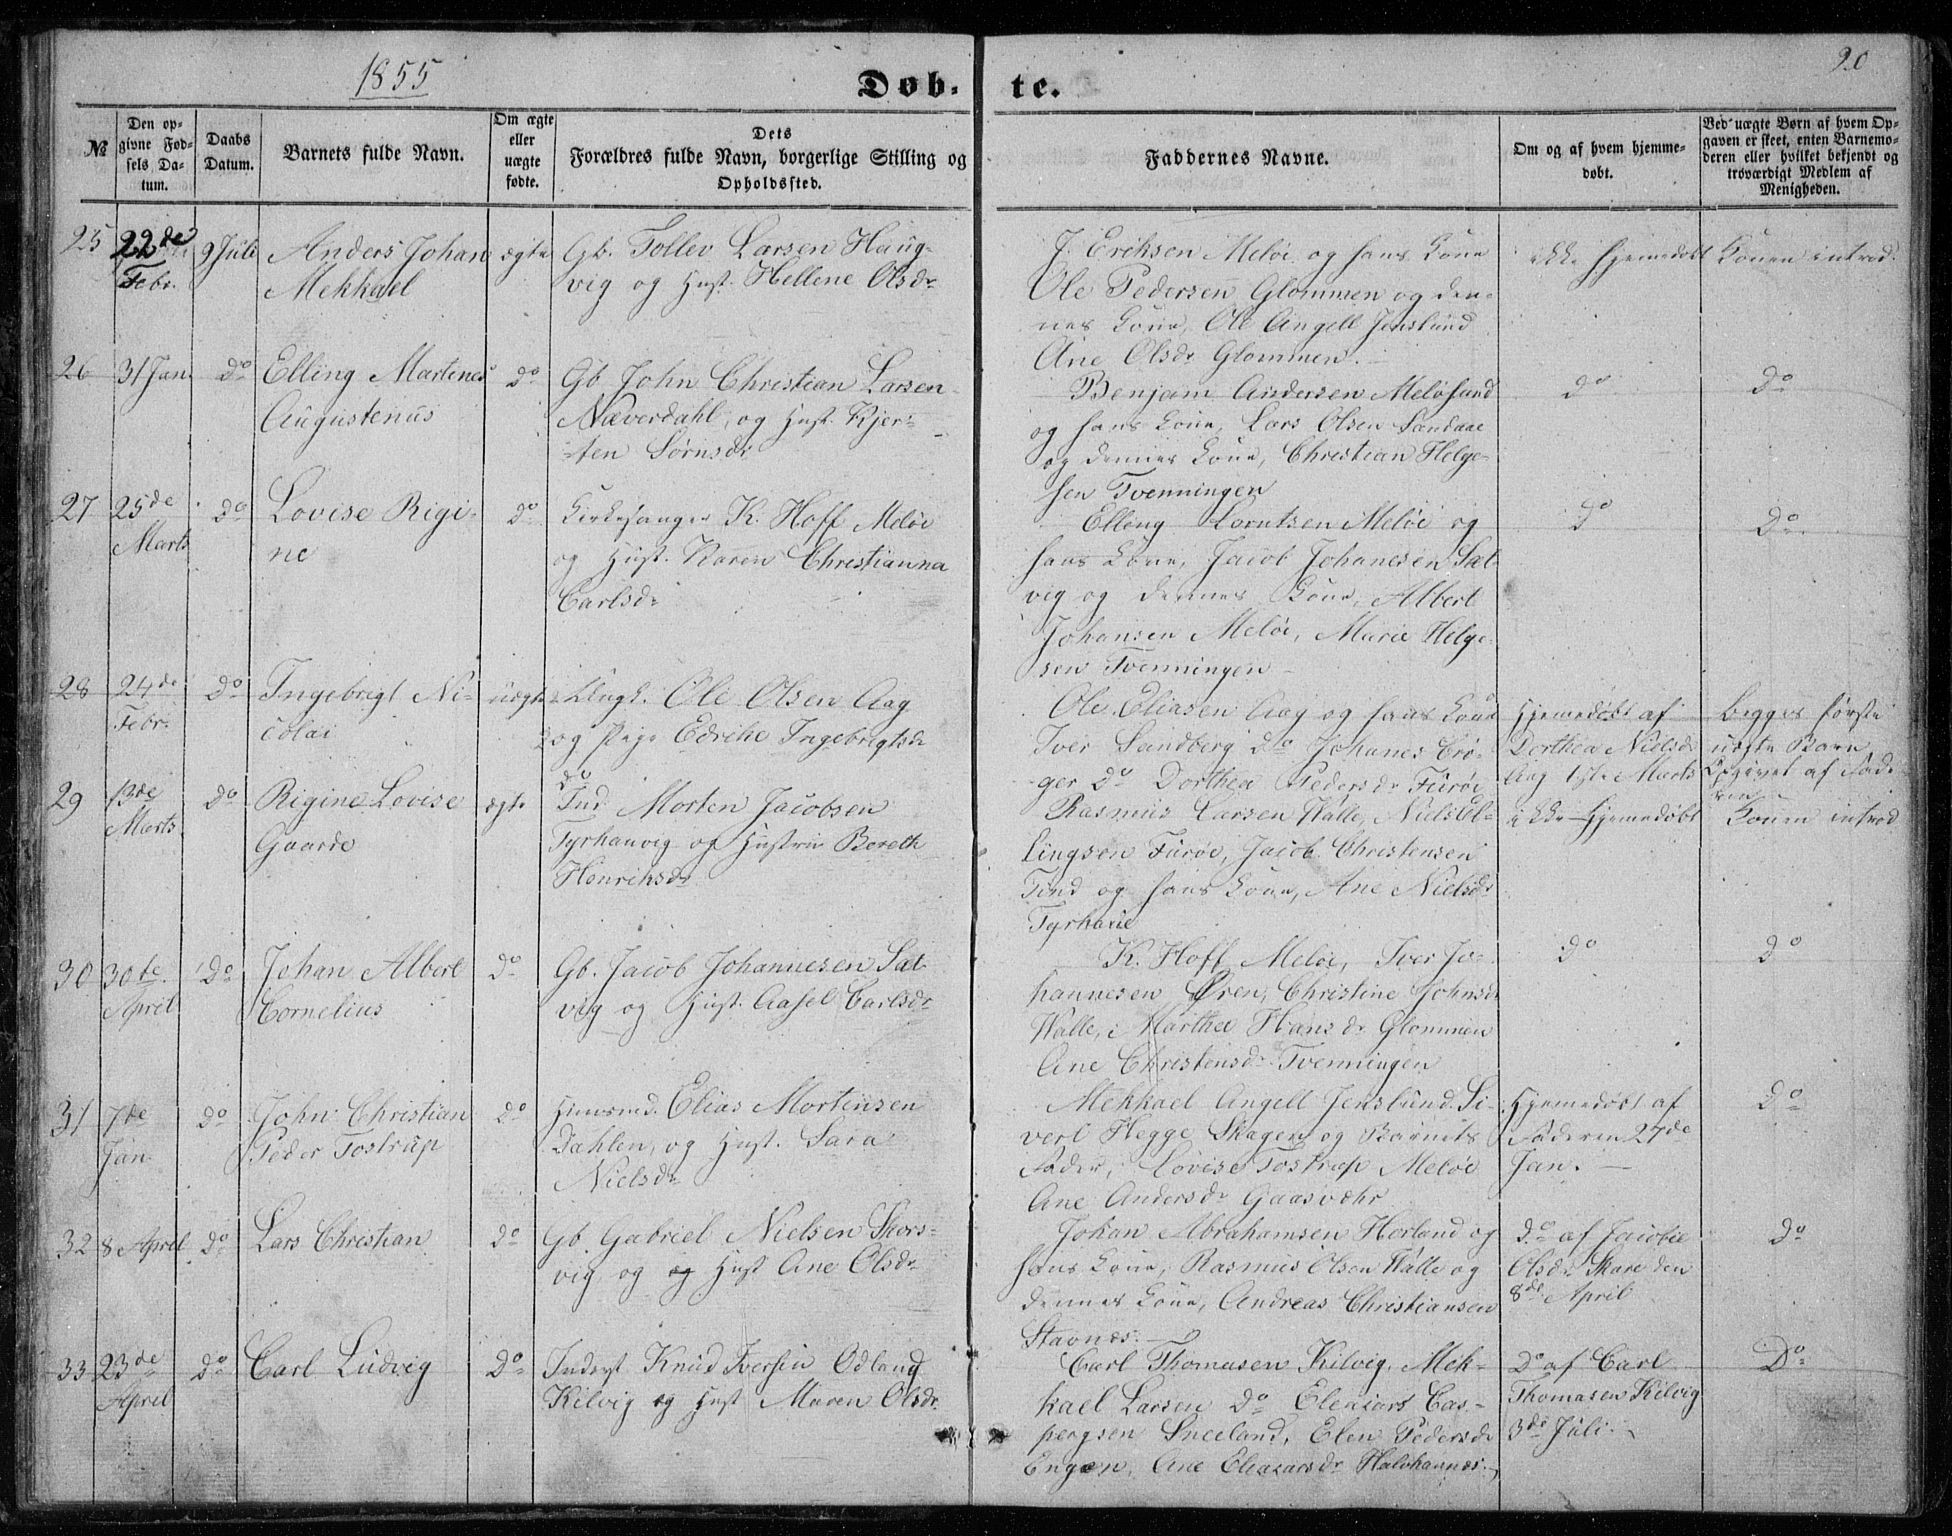 1855
20
Døb- te.
№
Den op-
givne Fød-
sels Da-
tum.
Daabs
Datum.
Barnets fulde Navn.
Om ægte
eller
uægte
fødte.
Dets
Forældres fulde Navn, borgerlige Stilling og
Opholdssted.
Faddernes Navne.
Om og af hvem hjemme-
døbt.
Ved uægte Børn af hvem Op-
gaven er skeet, enten Barnemo-
deren eller hvilket bekjendt og
troværdigt Medlem af
Menigheden.
25 22de Febr. 9 Juli
Anders Johan
Mekkael
ægte
Gb. Tollev Larsen Haug-
vig og Hust. Hellene Olsdr
J. Eriksen Meløe og hans Kone
Ole Pedersen Glommen og den-
nes Kone, Ole Angell Jenslund
Ane Olsdr Glommen.
ikke hjemedøbt
Konen introd.
26 31 Jan. do
Elling Martines
Augustenus
do
Gb. John Christian Larsen
Næverdahl, og Hust. Kjer-
sten Sørnsdr
Benjam Andersen Meløsund
og hans Kone, Lars Olsen Sandaae
og dennes Kone, Christian Helge-
sen Tvenningen
do
do
27 25de Marts do
Lovise Rigi-
ne
do
Kirkesanger K. Hoff Meløe
og Hust. Karen Christianna
Carlsdr
Elling Lorntsen Meløe og
hans Kone, Jacob Johanesen Sæt-
vig og dennes Kone, Albert
Johansen Meløe, Marie Helge-
sen Tvenningen
do
do
28 24de Febr. do
Ingebrigt Ni-
colai
uægte
Ungk. Ole Olsen Aag
og Pige Edrike Ingebrigtsdr
do
Ole Eliasen Aag og hans Kone
Iver Sandberg do Johanes Crø-
ger do Dorthea Pedersdr Furøe
Hjemedøbt af
Dorthea Nielsdr
Aag 1ste Marts
Begges første
uægte Barn
Opgivet af Fade-
ren
29 13de Marts do
Rigine Lovise
Gaarde
ægte
Ind. Morten Jacobsen
Tyrhauvig og Hustru Bereth
Henriksdr
Rasmus Larsen Walle, Niels El-
lingsen Furøe, Jacob Christensen
Tind og hans Kone, Ane Nielsdr
Tyrhaue
ikke Hjemedøbt
Konen introd
30 30te April do
Johan Albert
Cornelius
do
Gb. Jacob Johannesen Sæt-
vig og Hust. Aasel Carlsdr
K. Hoff Meløe, Iver Jo-
hannesen Øren, Christine Johnsdr
Walle, Marthea Hansdr Glommen
Ane Christensdr Tvenningen
do
do
31 7de Jan. do
John Christian
Peder Tostrup
do
Huusmd. Elias Mortensen
Dahlen, og Hust. Sara
Nielsdr
Mekkael Angell Jenslund, Si-
vert Hegge Skagen og Barnets
Fader, Lovise Tostrup Meløe
Ane Andersdr Gaasvæhr
Hjemedøbt af
Faderen 27de
Jan.
do
32 8 April do
Lars Christian
do
Gb Gabriel Nielsen Skars-
vig og og Hust Ane Olsdr
Johan Abrahamsen Horland og
hans Kone, Rasmus Olsen Walle og
dennes Kone, Andreas Christiansen
Stavnes.
do af Jacobie
Olsdr Skare den
8de April
do
33 23de April do
Carl Ludvig
do
Inderst Knud Iversen Odland
Kilvig og Hust Maren Olsdr.
Carl Thomasen Kilvig, Mek-
kael Larsen do Eleazars Cas-
pergsen Sneeland, Elen Pedersdr
Engen, Ane Eleazarsdr Halshaunes.
Do af Carl
Thomasen Kilvig
3de Juli.
Do